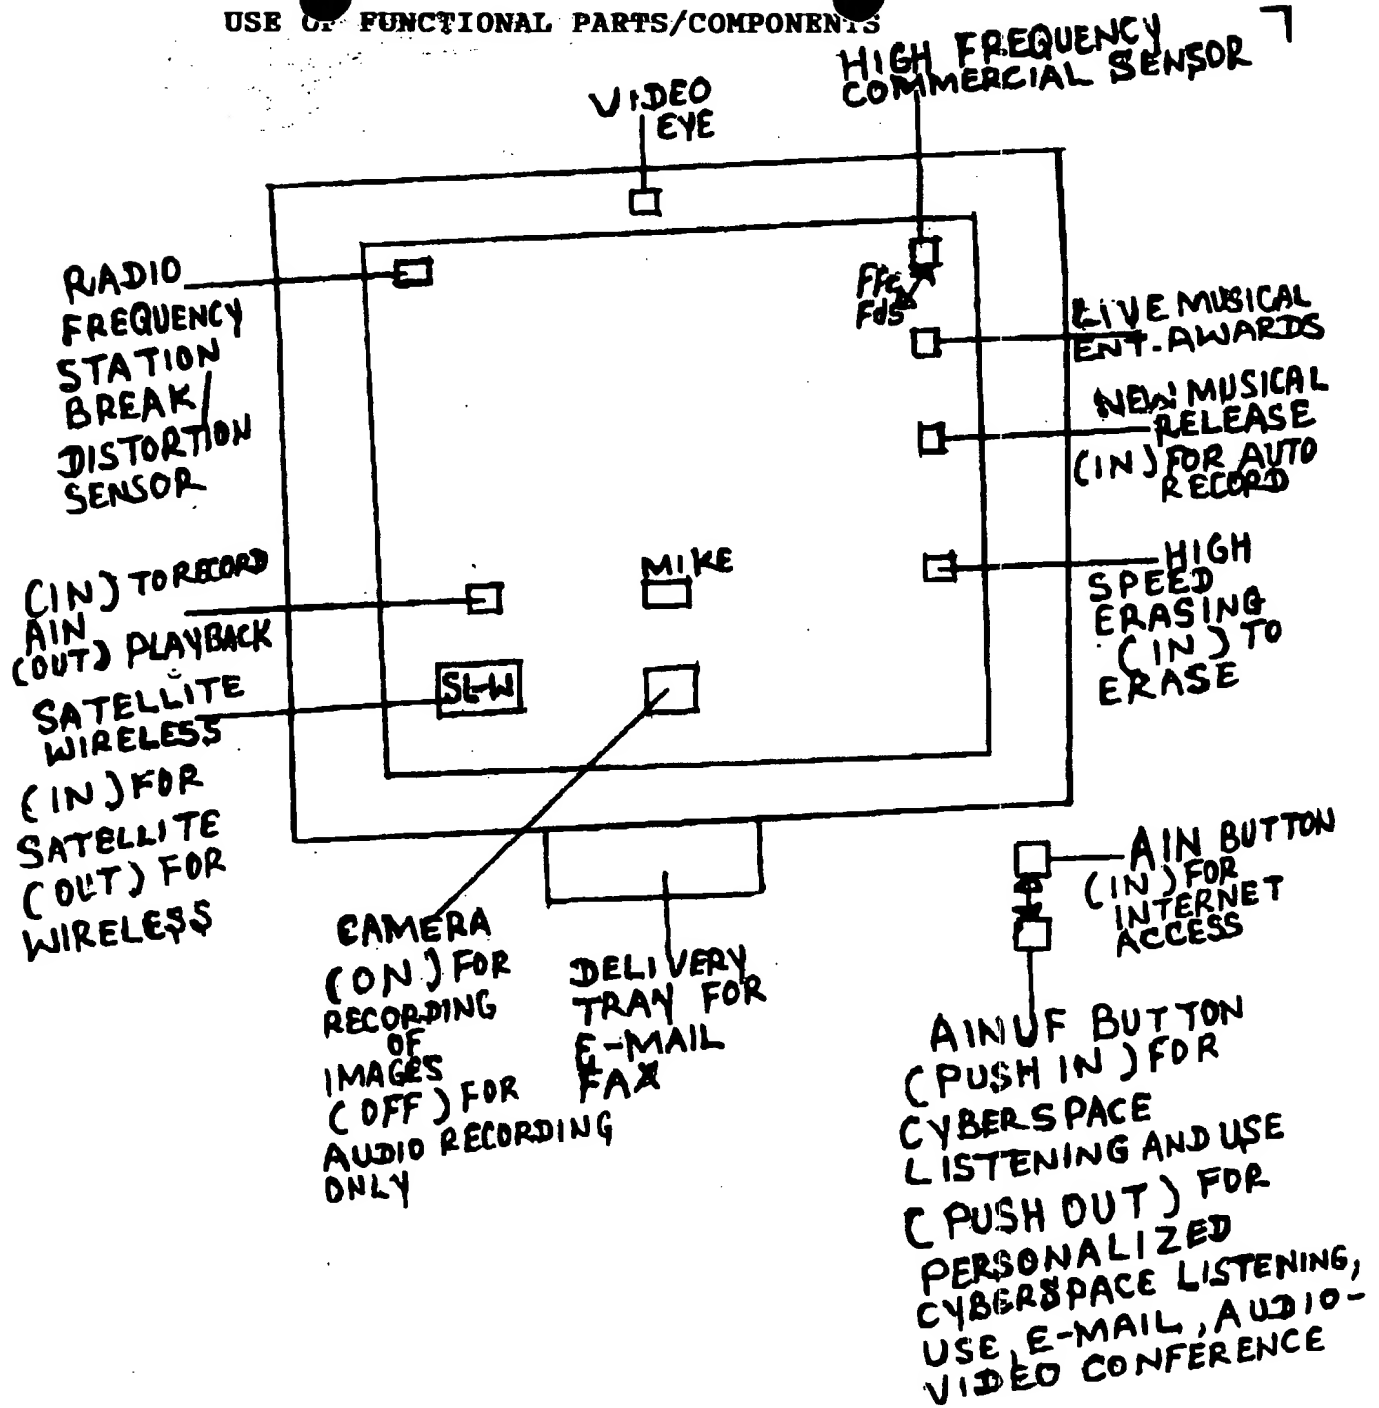 USE OF FUNCTIONAL PARTS/COMPONENTS
HIGH FREQUENCY
COMMERCIAL SENSOR
VIDEO
EYE
RADIO
FREQUENCY
STATION
BREAK/
DISTORTION
SENSOR
Ffc
Fds
LIVE MUSICAL
ENT. AWARDS
NEW MUSICAL
RELEASE
(IN) FOR AUTO
RECORD
(IN) TO RECORD
AIN
(OUT) PLAYBACK
MIKE
HIGH
SPEED
ERASING
(IN) TO
ERASE
SATELLITE
WIRELESS
(IN) FOR
SATELLITE
(OUT) FOR
WIRELESS
SL-W
CAMERA
(ON) FOR
RECORDING
OF
IMAGES
(OFF) FOR
AUDIO RECORDING
ONLY
DELIVERY
TRAY FOR
E-MAIL
FAX
AIN BUTTON
(IN) FOR
INTERNET
ACCESS
AINUF BUTTON
(PUSH IN) FOR
CYBERSPACE
LISTENING AND USE
(PUSH OUT) FOR
PERSONALIZED
CYBERSPACE LISTENING,
USE, E-MAIL, AUDIO-
VIDEO CONFERENCE